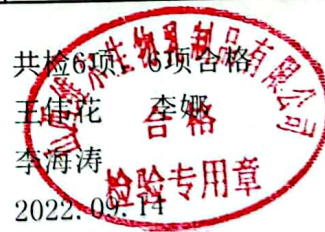 共检6项, 6项合格
王伟花 李娜
李海涛
2022.09.14
生物乳制品有限公司
合格
检验专用章